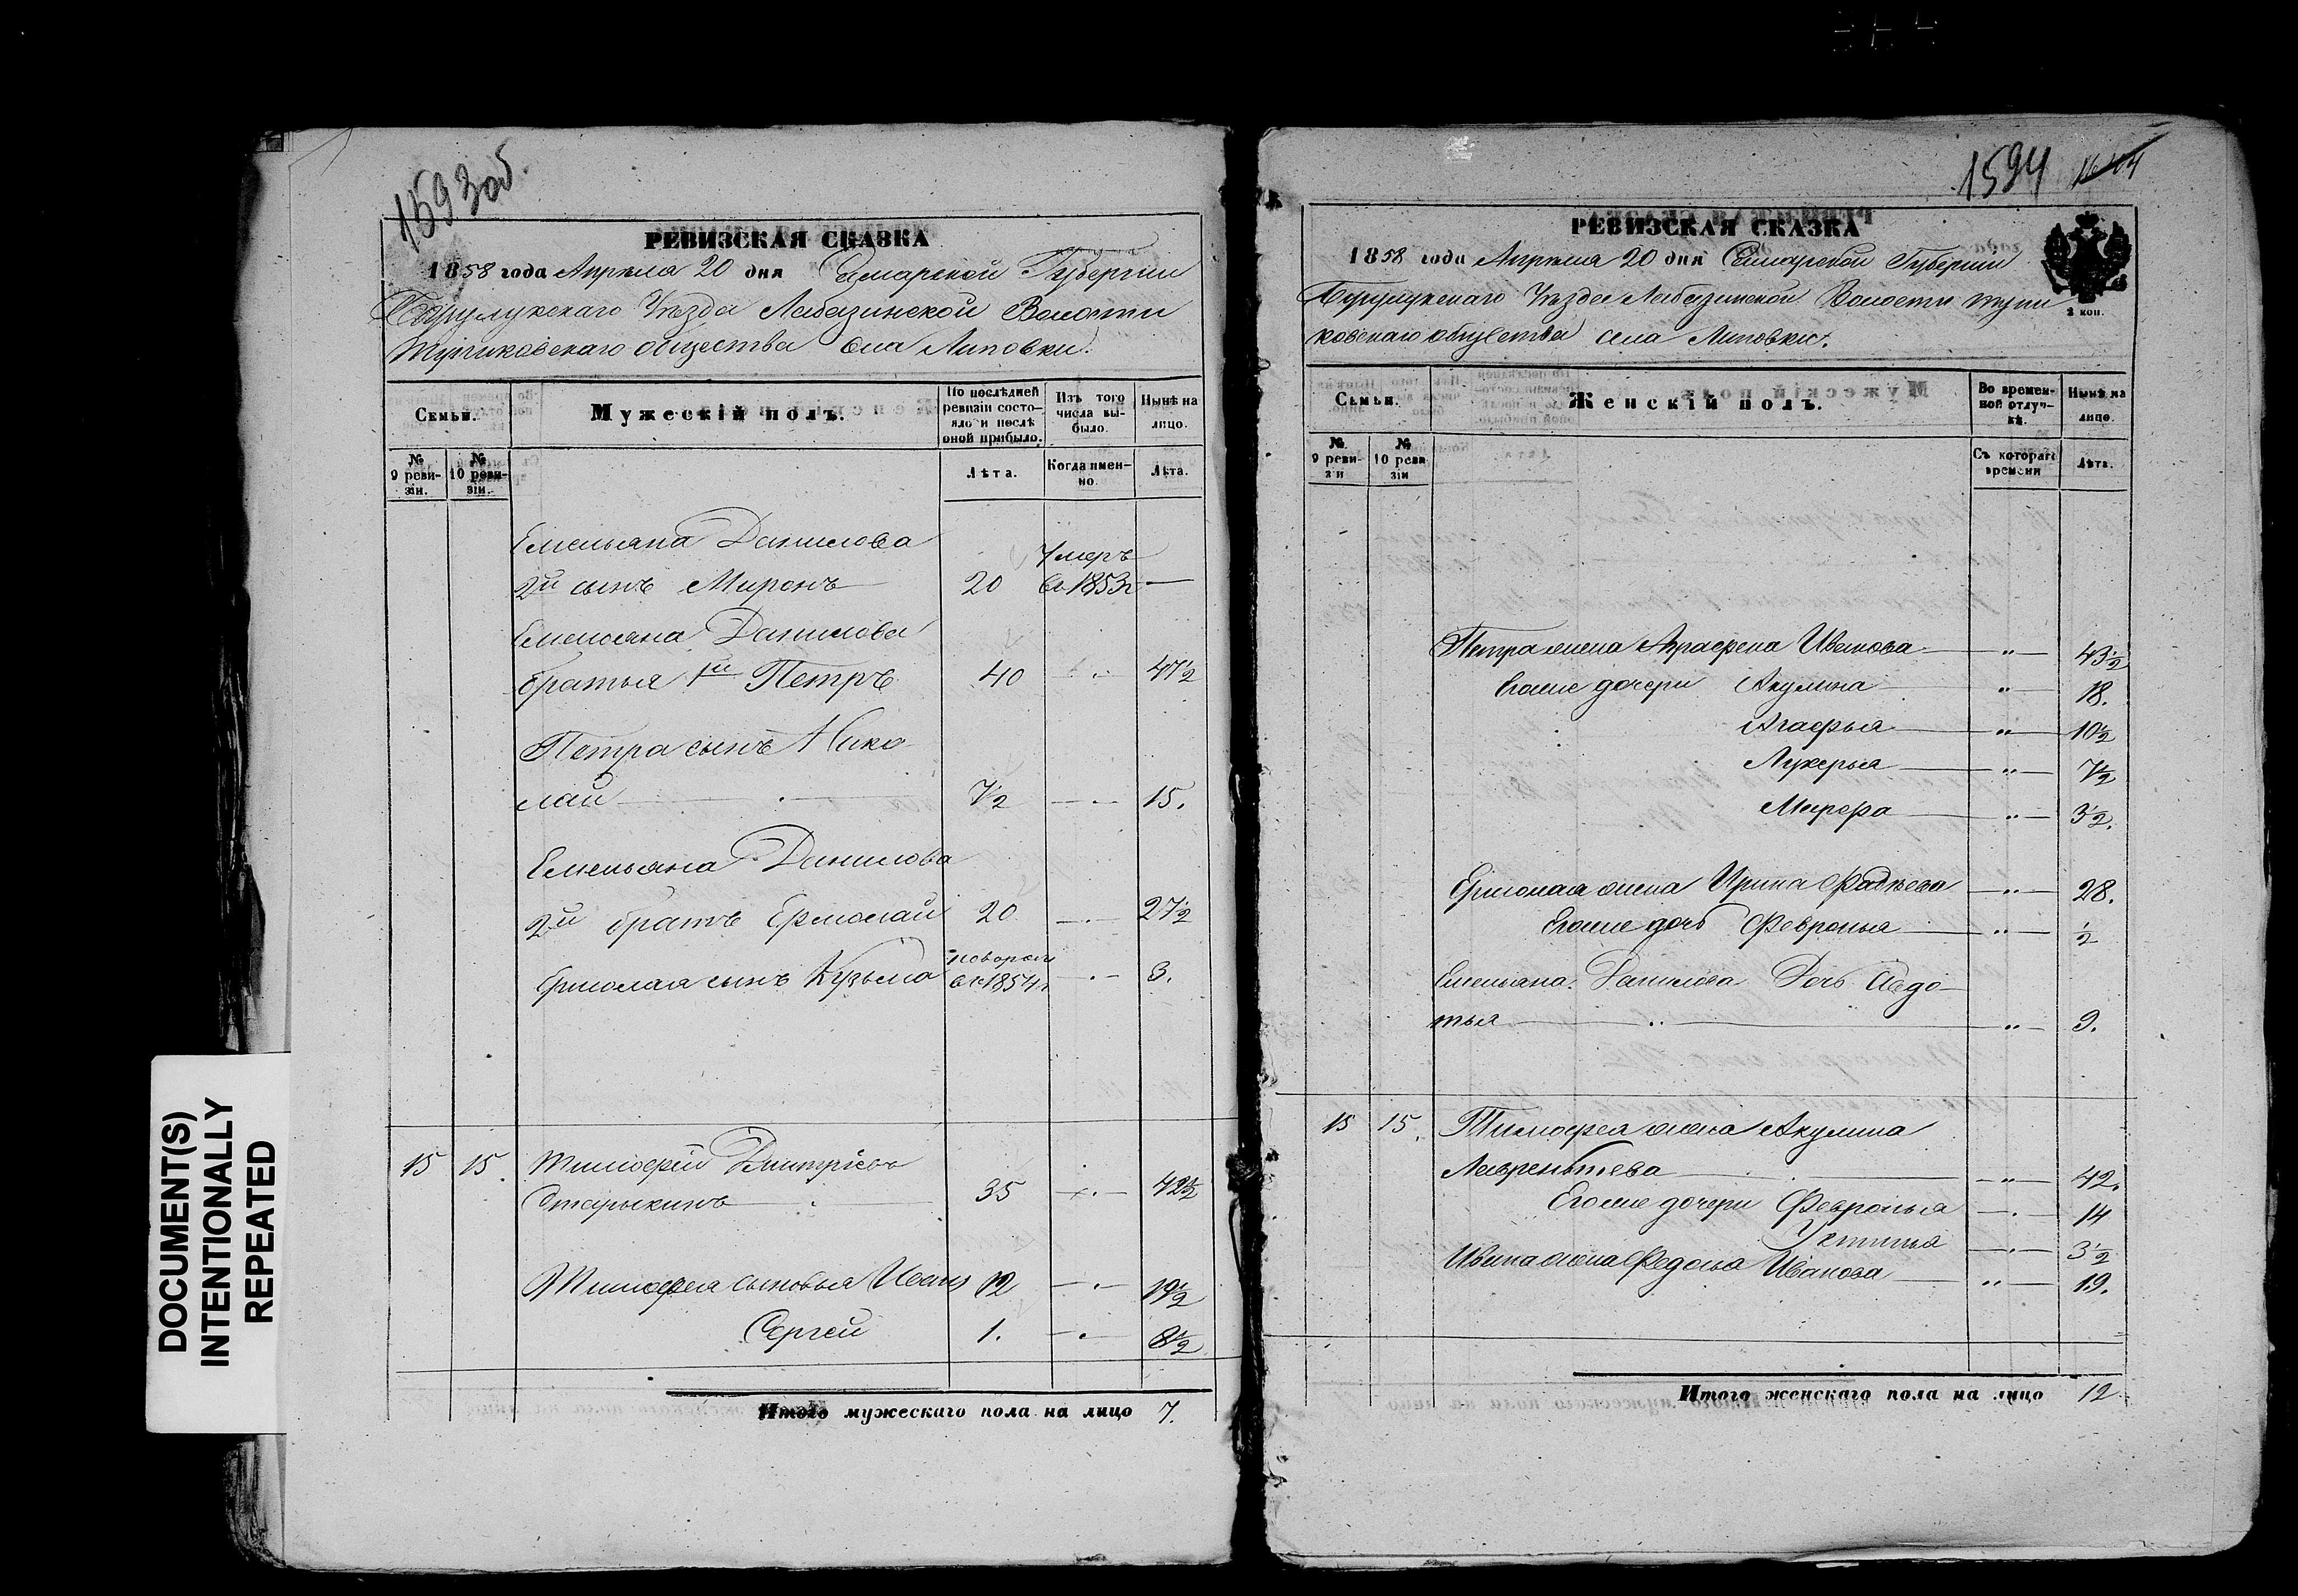 1593об.
РЕВИЗСКАЯ СКАЗКА
1858 года Апрѣля 20 дня Самарской Губерніи
Бузулукскаго Уѣзда Лабазинской Волости
Тупиковскаго общества села Липовки.
Семьи.
Мужескій полъ.
По послѣдней ревизіи состояло и послѣ оной прибыло.
Изъ того числа выбыло.
Нынѣ на лицо.
№ 9 ревизіи.
№ 10 ревизіи.
Лѣта.
Когда именно.
Лѣта.
Емельяна Данилова
2й сынъ Миронъ 20 Умеръ въ 1853г —
Емельяна Данилова
братья 1й Петръ 40 47½
Петра сынъ Нико-
лай 7½ 15.
Емельяна Данилова
2й братъ Ермолай 20 27½
Ермолая сынъ Кузьма новорож въ 1854г 3.
15 15. Тимофей Дмитріевъ
Старыкинъ 35 42½
Тимофея сыновья Иванъ 12 19½
Сергей 1. 8½
Итого мужескаго пола на лицо 7.
DOCUMENT(S)
INTENTIONALLY
REPEATED
1594
РЕВИЗСКАЯ СКАЗКА
1858 года Апрѣля 20 дня Самарской Губерніи
Бузулукскаго Уѣзда Лабазинской Волости Тупи
ковскаго общества села Липовки.
2 коп.
Семьи.
Женскій полъ.
Во временной отлучкѣ.
Нынѣ на лицо.
№ 9 ревизіи
№ 10 ревизіи
Съ котораго времени
Лѣта.
Петра жена Аграфена Иванова 43½
Егоже дочери Акулина 18.
Агафья 10½
Лукерья 7½
Марфа 3½.
Ермолая жена Ирина Фадѣева 28.
Егоже дочь Февронья ½
Емельяна Данилова Дочь Авдо-
тья 9.
15 15. Тимофея жена Акулина
Лаврентьева 42.
Егоже дочери Февронья 14
Устинья 3½
Ивана жена Федосья Иванова 19.
Итого женскаго пола на лицо 12